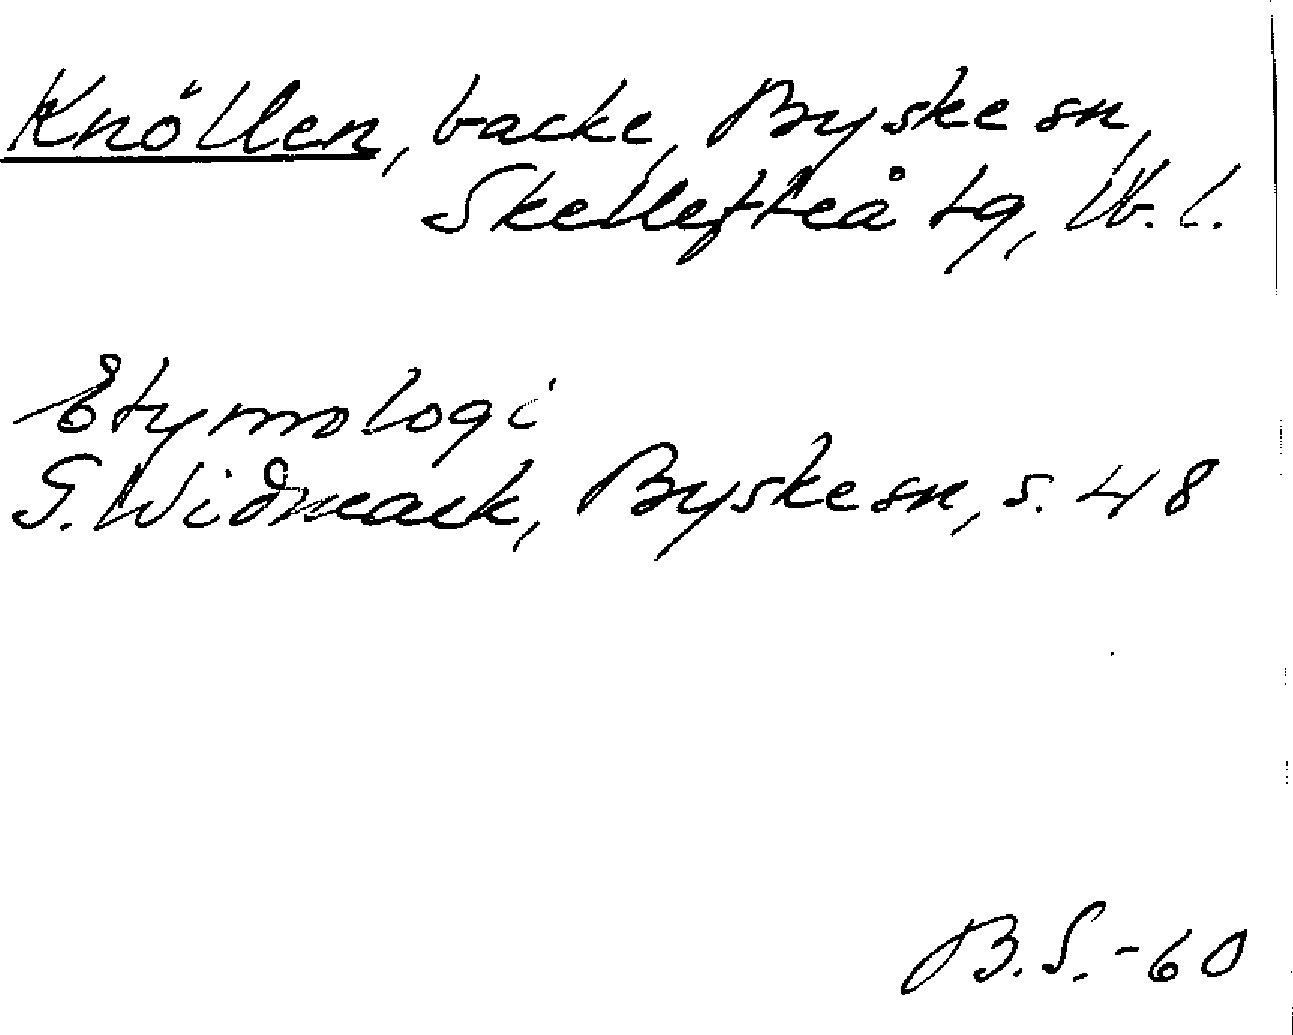 Knöllen, backe, Byske sn,
Skellefteå tg, Vb. l.
Etymologi
G. Widmark, Byske sn, s. 48
B.S. -60